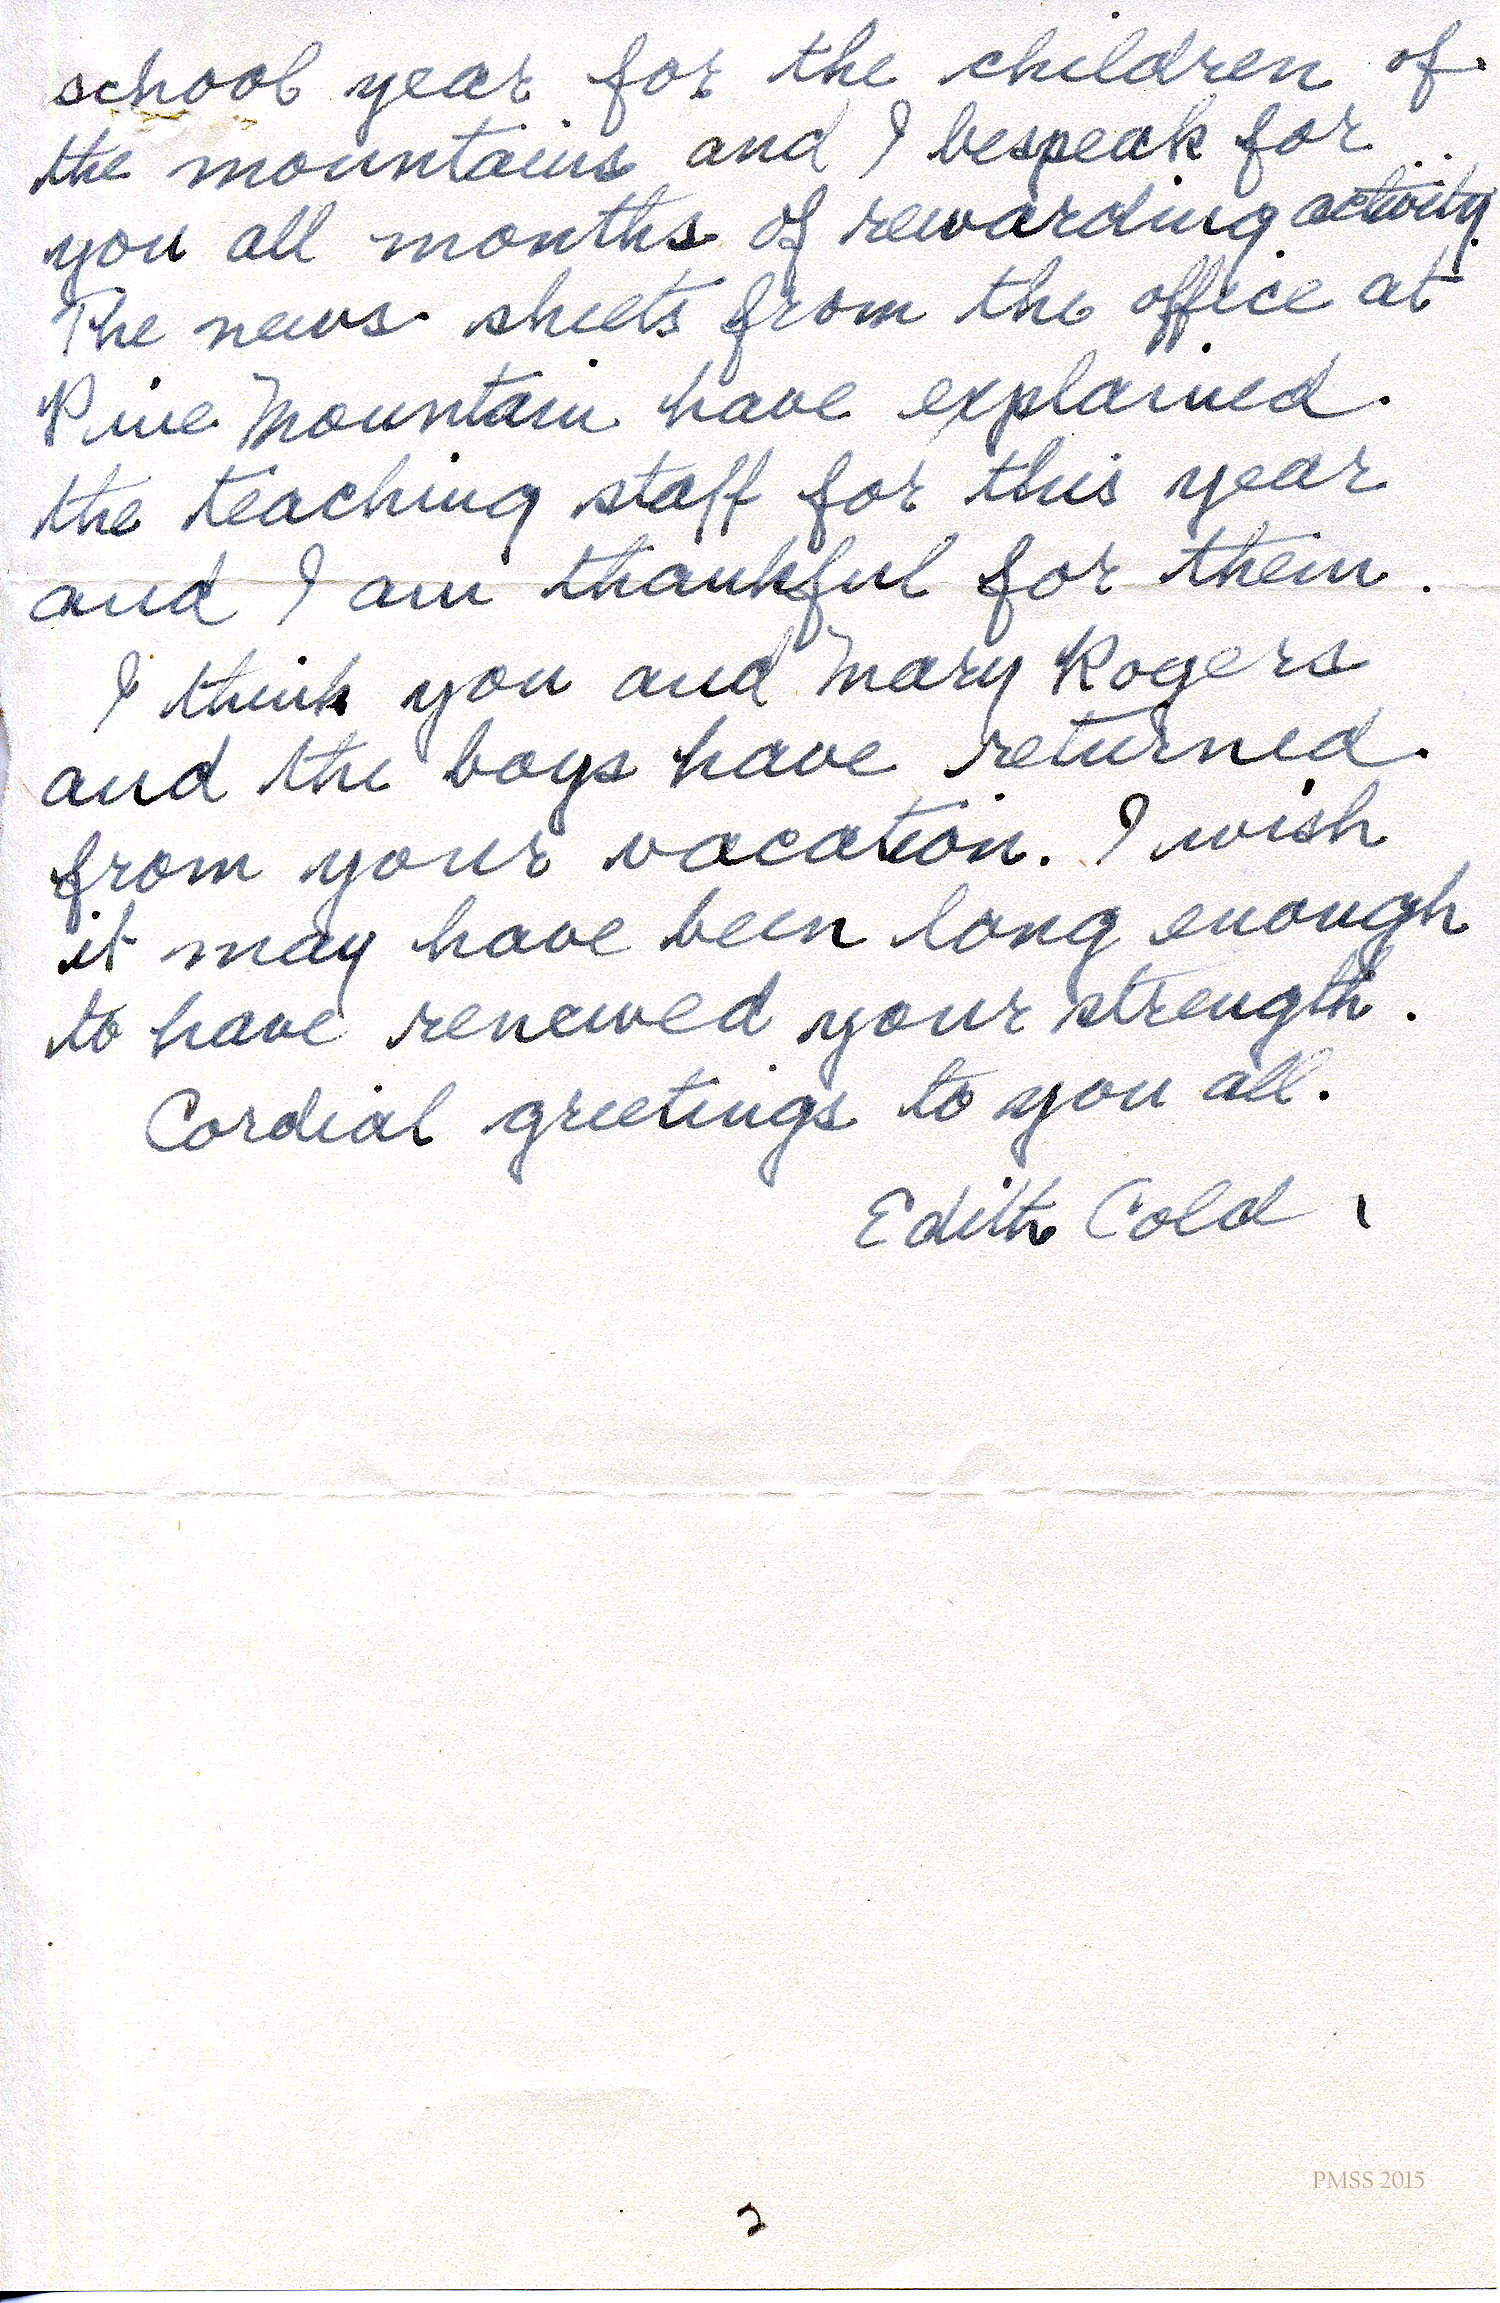 school year for the children of
the mountains and I bespeak for
you all months of rewarding activity.
The news sheets from the office at
Pine Mountain have explained
the teaching staff for this year
and I am thankful for them.
I think you and Mary Rogers
and the boys have returned
from your vacation. I wish
it may have been long enough
to have renewed your strength.
Cordial greetings to you all.
Edith Cold
PMSS 2015
2